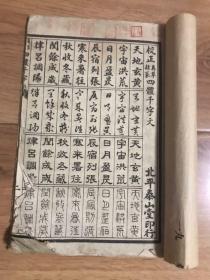 校正真草隸篆四體千字文
北平泰山堂印行
天地玄黃天地玄黃天地玄黃天地玄黃
宇宙洪荒宇宙洪荒宇宙洪荒宇宙洪荒
日月盈昃日月盈昃日月盈昃日月盈昃
辰宿列張辰宿列張辰宿列張辰宿列張
寒來暑往寒來暑往寒來暑往寒來暑往
秋收冬藏秋收冬藏秋收冬藏秋收冬藏
閏餘成歲閏餘成歲閏餘成歲閏餘成歲
律呂調陽律呂調陽律呂調陽律呂調陽